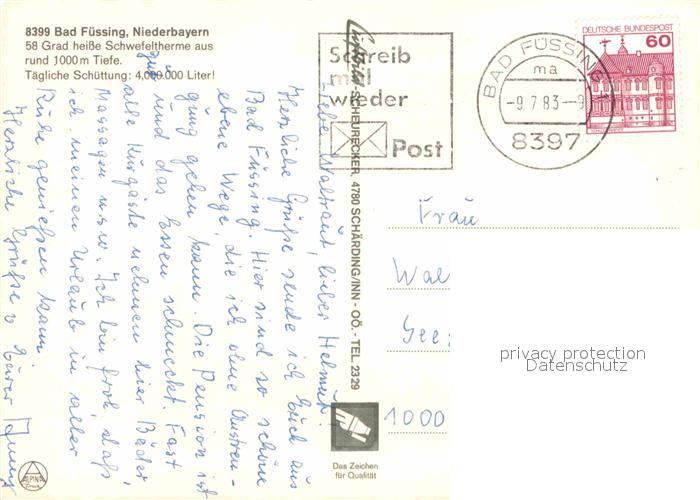 8399 Bad Füssing, Niederbayern
58 Grad heiße Schwefeltherme aus
rund 1000 m Tiefe.
Tägliche Schüttung: 4,000.000 Liter!
Liebe Waltraut, lieber Helmut!
Herzliche Grüße sende ich Euch aus
Bad Füssing. Hier sind so schöne
ebene Wege, die ich ohne Anstren-
gung gehen kann. Die Pension ist
gut und das Essen schmeckt. Fast
alle Kurgäste nehmen hier Bäder,
Massagen usw. Ich bin froh, daß
ich meinen Urlaub in aller
Ruhe genießen kann.
Herzliche Grüße v Eurer
Schreib
mal
wieder
Post
BAD FÜSSING 1
ma
-9.7.83-9
8397
DEUTSCHE BUNDESPOST
60
-SCHEURECKER, 4780 SCHÄRDING/INN - OÖ. - TEL. 2329
Frau
Wal
See
1000
privacy protection
Datenschutz
Das Zeichen
für Qualität
ALPINA